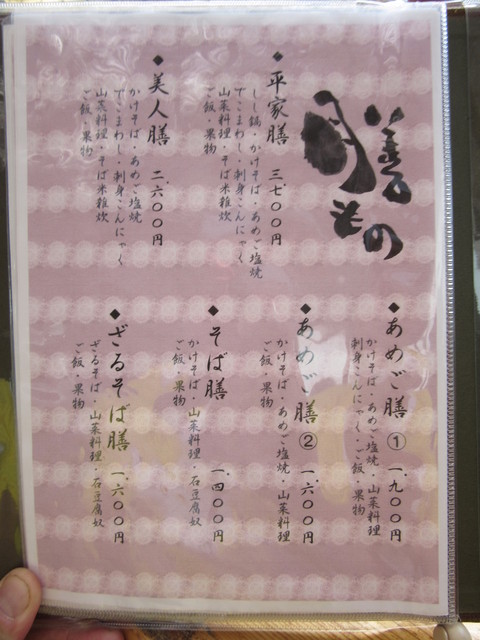 膳もの
◆平家膳 三、七〇〇円
しし鍋・かけそば・あめご塩焼
でこまわし・刺身こんにゃく
山菜料理・そば米雑炊
ご飯・果物
◆美人膳 二、六〇〇円
かけそば・あめご塩焼
でこまわし・刺身こんにゃく
山菜料理・そば米雑炊
ご飯・果物
◆あめご膳① 一、九〇〇円
かけそば・あめご塩焼・山菜料理
刺身こんにゃく・ご飯・果物
◆あめご膳② 一、六〇〇円
かけそば・あめご塩焼・山菜料理
ご飯・果物
◆そば膳 一、四〇〇円
かけそば・山菜料理・石豆腐奴
ご飯・果物
◆ざるそば膳 一、六〇〇円
ざるそば・山菜料理・石豆腐奴
ご飯・果物